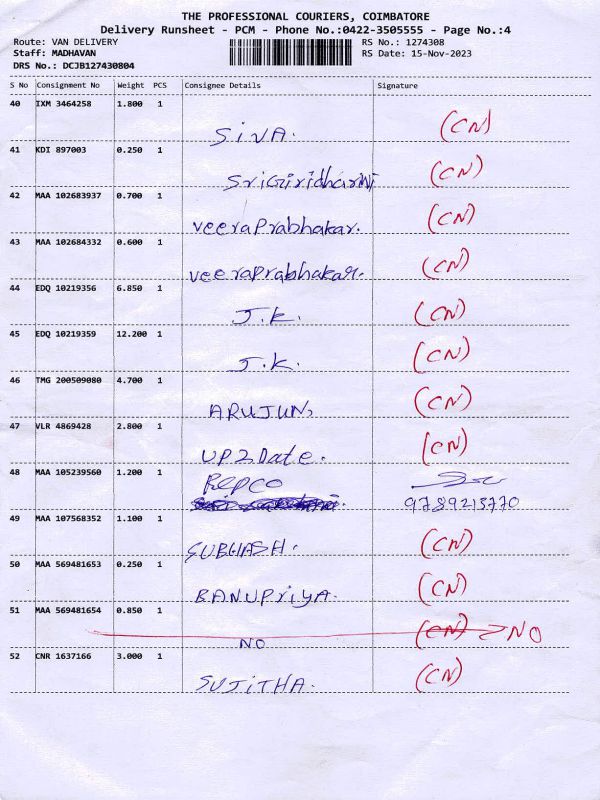 THE PROFESSIONAL COURIERS, COIMBATORE
Delivery Runsheet - PCM - Phone No.:0422-3505555 - Page No.:4
Route: VAN DELIVERY RS No.: 1274308
Staff: MADHAVAN RS Date: 15-Nov-2023
DRS No.: DCJB127430804
S No Consignment No Weight PCS Consignee Details Signature
40 IXM 3464258 1.800 1
SiVA. (CN)
41 KDI 897003 0.250 1
SriGiridharini (CN)
42 MAA 102683937 0.700 1
VeeraPrabhakar. (CN)
43 MAA 102684332 0.600 1
VeeraPrabhakar. (CN)
44 EDQ 10219356 6.850 1
J.K. (CN)
45 EDQ 10219359 12.200 1
J.K. (CN)
46 TMG 200509080 4.700 1
ARUJUN, (CN)
47 VLR 4869428 2.800 1
UP2Date. (CN)
48 MAA 105239560 1.200 1
REPCO
9789215770
49 MAA 107568352 1.100 1
SUBHASH. (CN)
50 MAA 569481653 0.250 1
BANUPriYA. (CN)
51 MAA 569481654 0.850 1
NO (CN) NO
52 CNR 1637166 3.000 1
SUJiTHA. (CN)